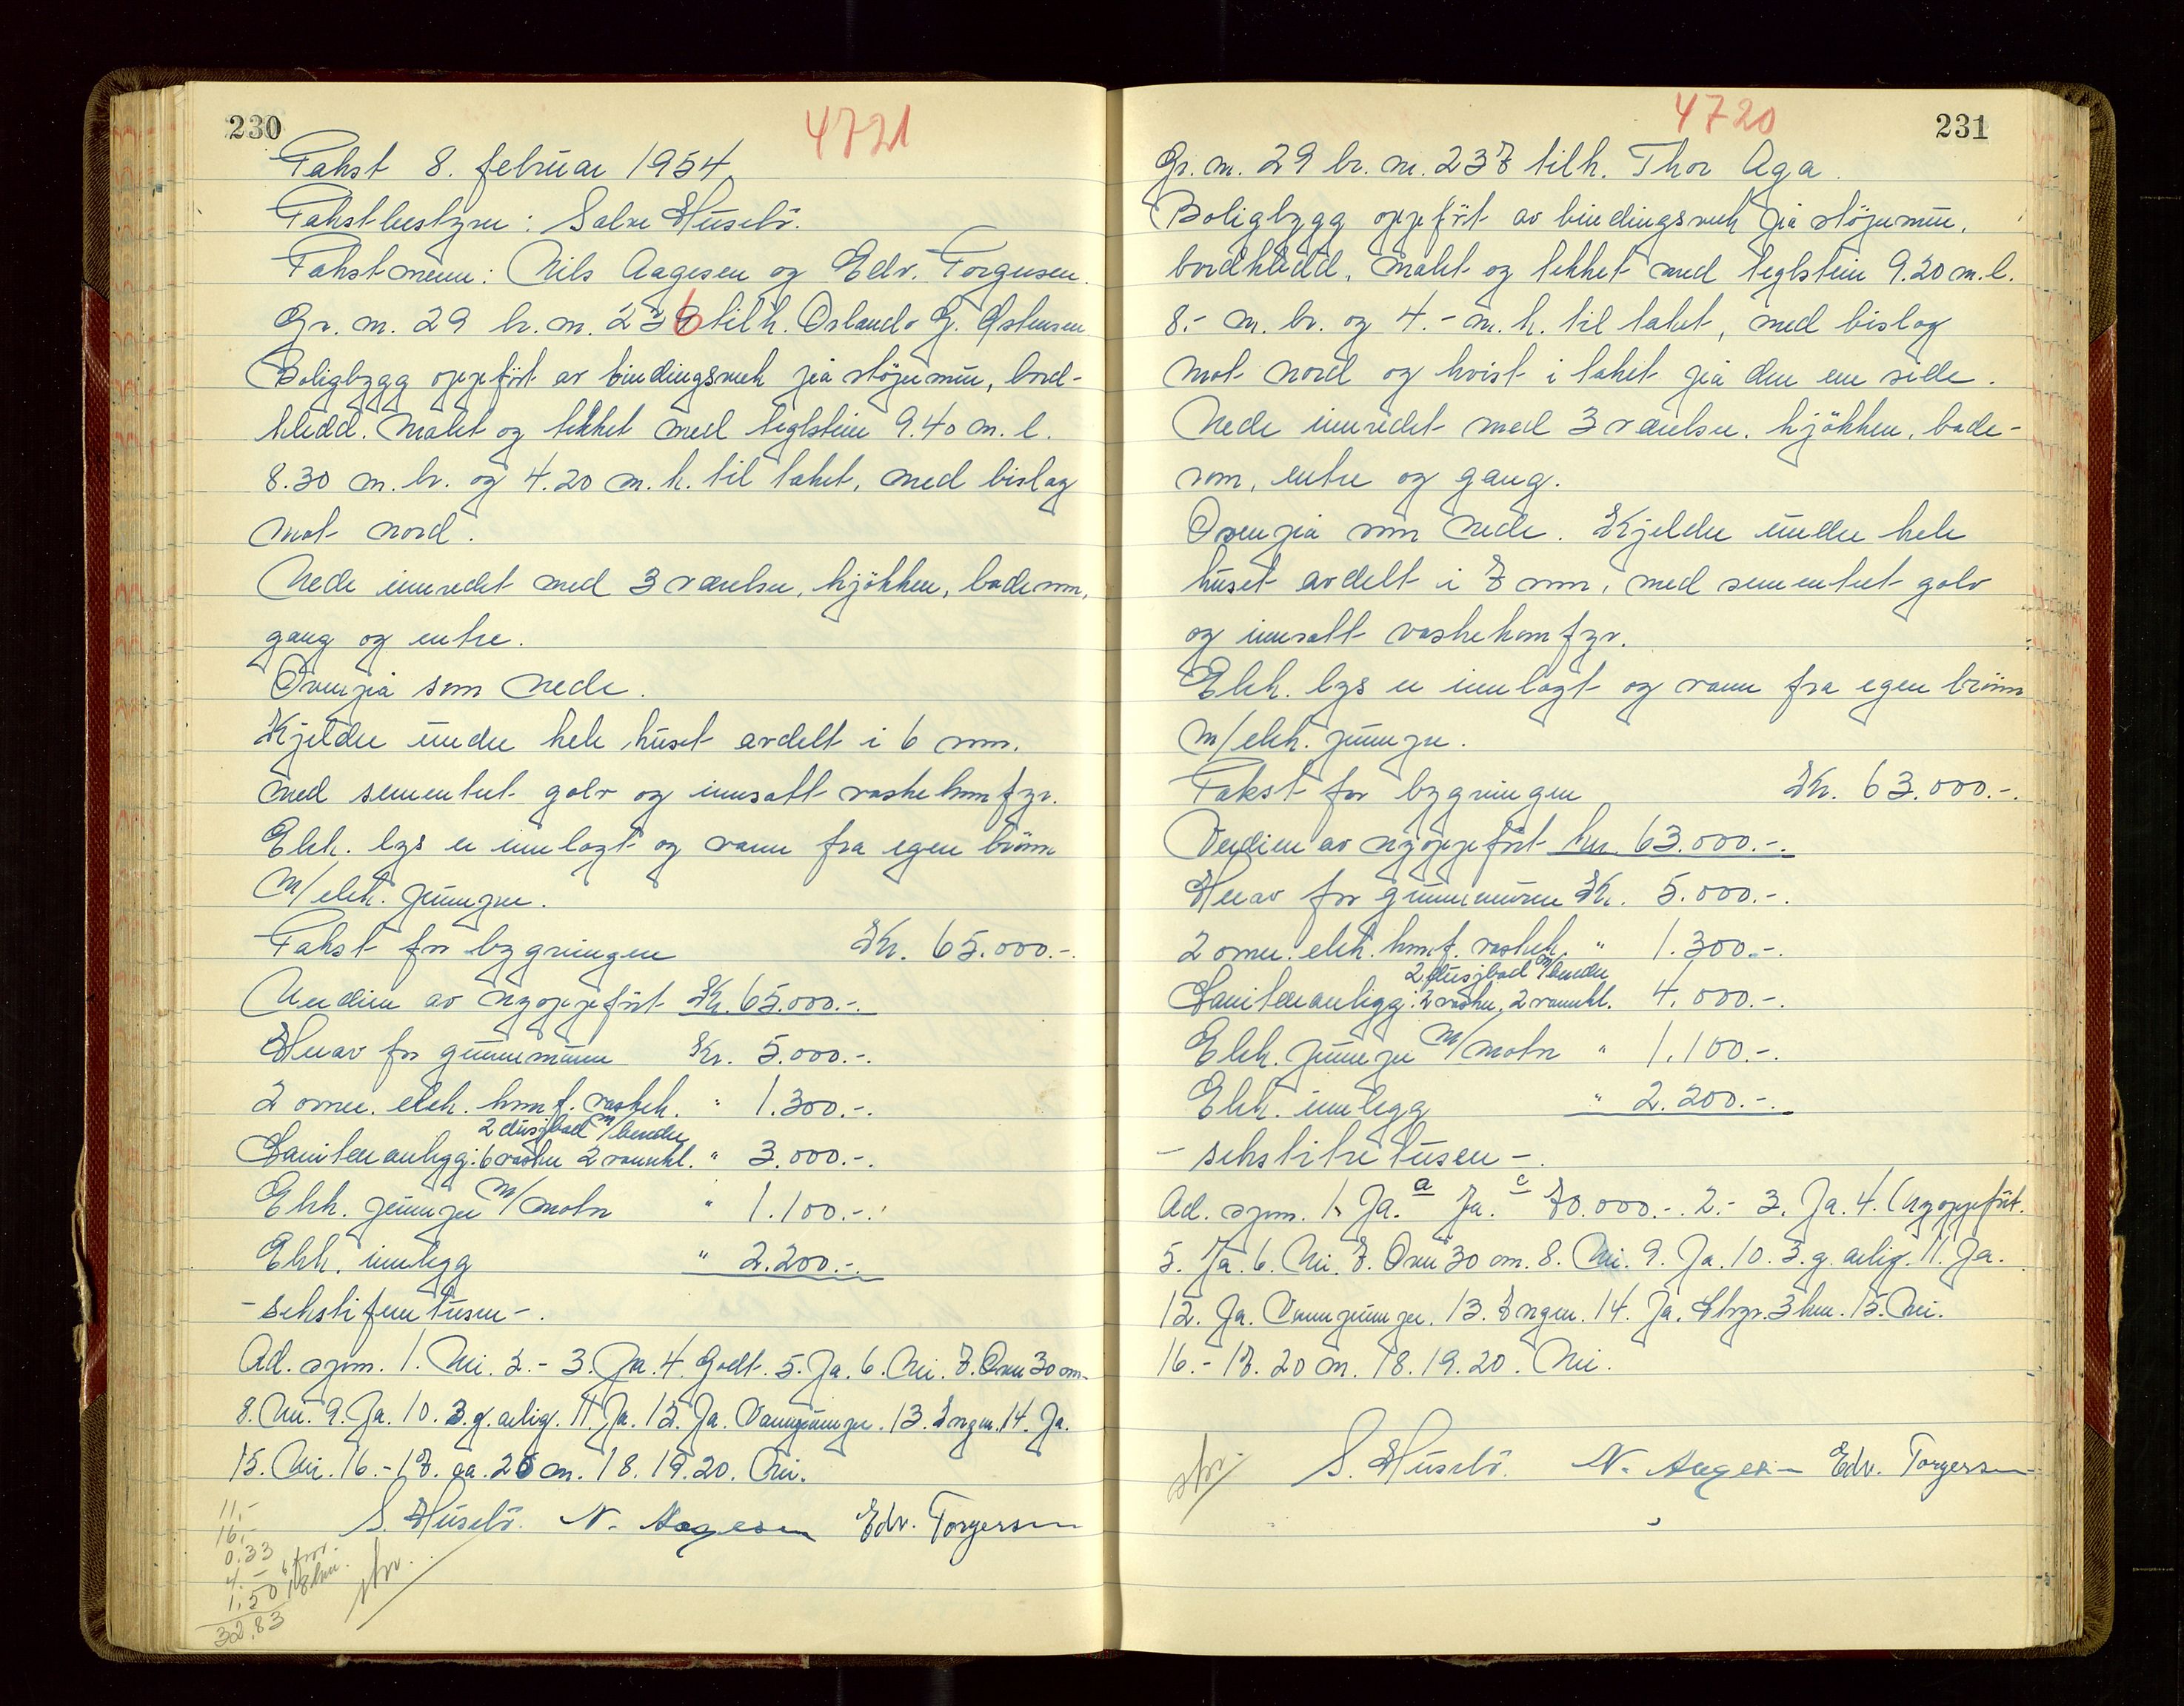 230
4721
Takst 8. februar 1954.
Takstbestyrer: Salve Huselö.
Takstmenn: Nils Aagesen og Edv. Torgersen.
Gr. nr. 29 br. nr. 236 tilh. G. Østensen
Boligbygg oppfört av bindingsverk på stöpemur, bord-
kledd. Malet og tekket med teglstein 9.40 m. l.
8.30 m. br. og 4.20 m. h. til taket, med bislag
mot nord.
Nede innredet med 3 værelser, kjökken, baderom,
gang og entre.
Ovenpå som nede.
Kjelder under hele huset avdelt i 6 rom.
med sementert golv og innsatt vaskekomfyr.
Elek. lys er innlagt og vann fra egen brönn
m/elek. pumpe.
Takst for bygningen Kr. 65.000.-.
Verdien av nyoppfört Kr. 65.000.-.
Herav for grunnmuren Kr. 5.000.-.
2 omv. elek. komf. vaskek. " 1.300.-.
2 dusjbad m/bereder
Sanitæranlegg: 6 vasker 2 vannkl. " 3.000.-.
Elek. pumpe m/motor " 1.100.-.
Elek. innlegg " 2.200.-.
- sekstifem tusen -.
Ad. spm. 1. Nei. 2.- 3. Ja. 4. Godt. 5. Ja. 6. Nei. 7. Over 30 cm.
8. Nei. 9. Ja. 10. 3. g. årlig. 11. Ja. 12. Ja. Vannpumpe. 13. Ingen. 14. Ja.
15. Nei. 16.- 17. ca. 25 m. 18. 19. 20. Nei.
S. Huselö. N. Aagesen Edv. Torgersen
11,-
16,-
0,33
4,- 6 forr.
1,50 18 km.
32,83
skr.
4720
231
Gr. nr. 29 br. nr. 237 tilh. Thor Aga.
Boligbygg oppfört av bindingsverk på stöpemur,
bordkledd, malet og tekket med teglstein 9.20 m. l.
8.- m. br. og 4.- m. h. til taket, med bislag
mot nord og kvist i taket på den ene side.
Nede innredet med 3 værelser, kjökken, bade-
rom, entre og gang.
Ovenpå som nede. Kjelder under hele
huset avdelt i 7 rom, med sementert golv
og innsatt vaskekomfyr.
Elek. lys er innlagt og vann fra egen brönn
m/elek. pumpe.
Takst for bygningen Kr. 63.000.-.
Verdien av nyoppfört kr. 63.000.-.
Herav for grunnmuren Kr. 5.000.-.
2 omv. elek. komf. vaskek. " 1.300.-.
2 dusjbad m/bereder
Sanitæranlegg: 2 vasker, 2 vannkl. 4.000.-.
Elek. pumpe m/motor " 1.100.-.
Elek. innlegg " 2.200.-.
- sekstitre tusen -.
Ad. spm. 1. Ja. a Ja. c 70.000.-. 2.- 3. Ja. 4. Nyoppfört.
5. Ja. 6. Nei. 7. Over 30 cm. 8. Nei. 9. Ja. 10. 3. g. årlig. 11. Ja.
12. Ja. Vannpumpe. 13. Ingen. 14. Ja. 3 km. 15. Nei.
16.- 17. 20 m. 18. 19. 20. Nei.
skr. S. Huselö. N. Aagesen Edv. Torgersen